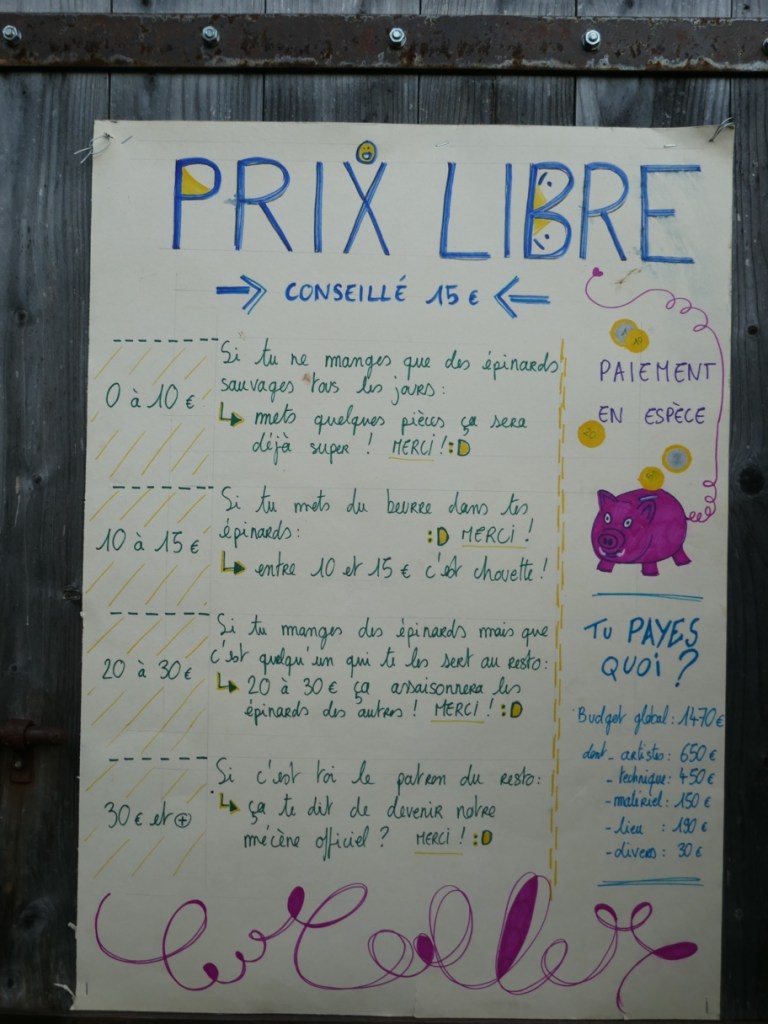 PRIX LIBRE
CONSEILLÉ 15 €
0 à 10 €
Si tu ne manges que des épinards
sauvages tous les jours :
mets quelques pièces ça sera
déjà super ! MERCI ! :D
10 à 15 €
Si tu mets du beurre dans tes
épinards : :D MERCI !
entre 10 et 15 € c'est chouette !
20 à 30 €
Si tu manges des épinards mais que
c'est quelqu'un qui te les sert au resto :
20 à 30 € ça assaisonnera les
épinards des autres ! MERCI ! :D
30 € et +
Si c'est toi le patron du resto :
ça te dit de devenir notre
mécène officiel ? MERCI ! :D
PAIEMENT
EN ESPÈCE
TU PAYES
QUOI ?
Budget global : 1470 €
dont - artistes : 650 €
- technique : 450 €
- matériel : 150 €
- lieu : 190 €
- divers : 30 €